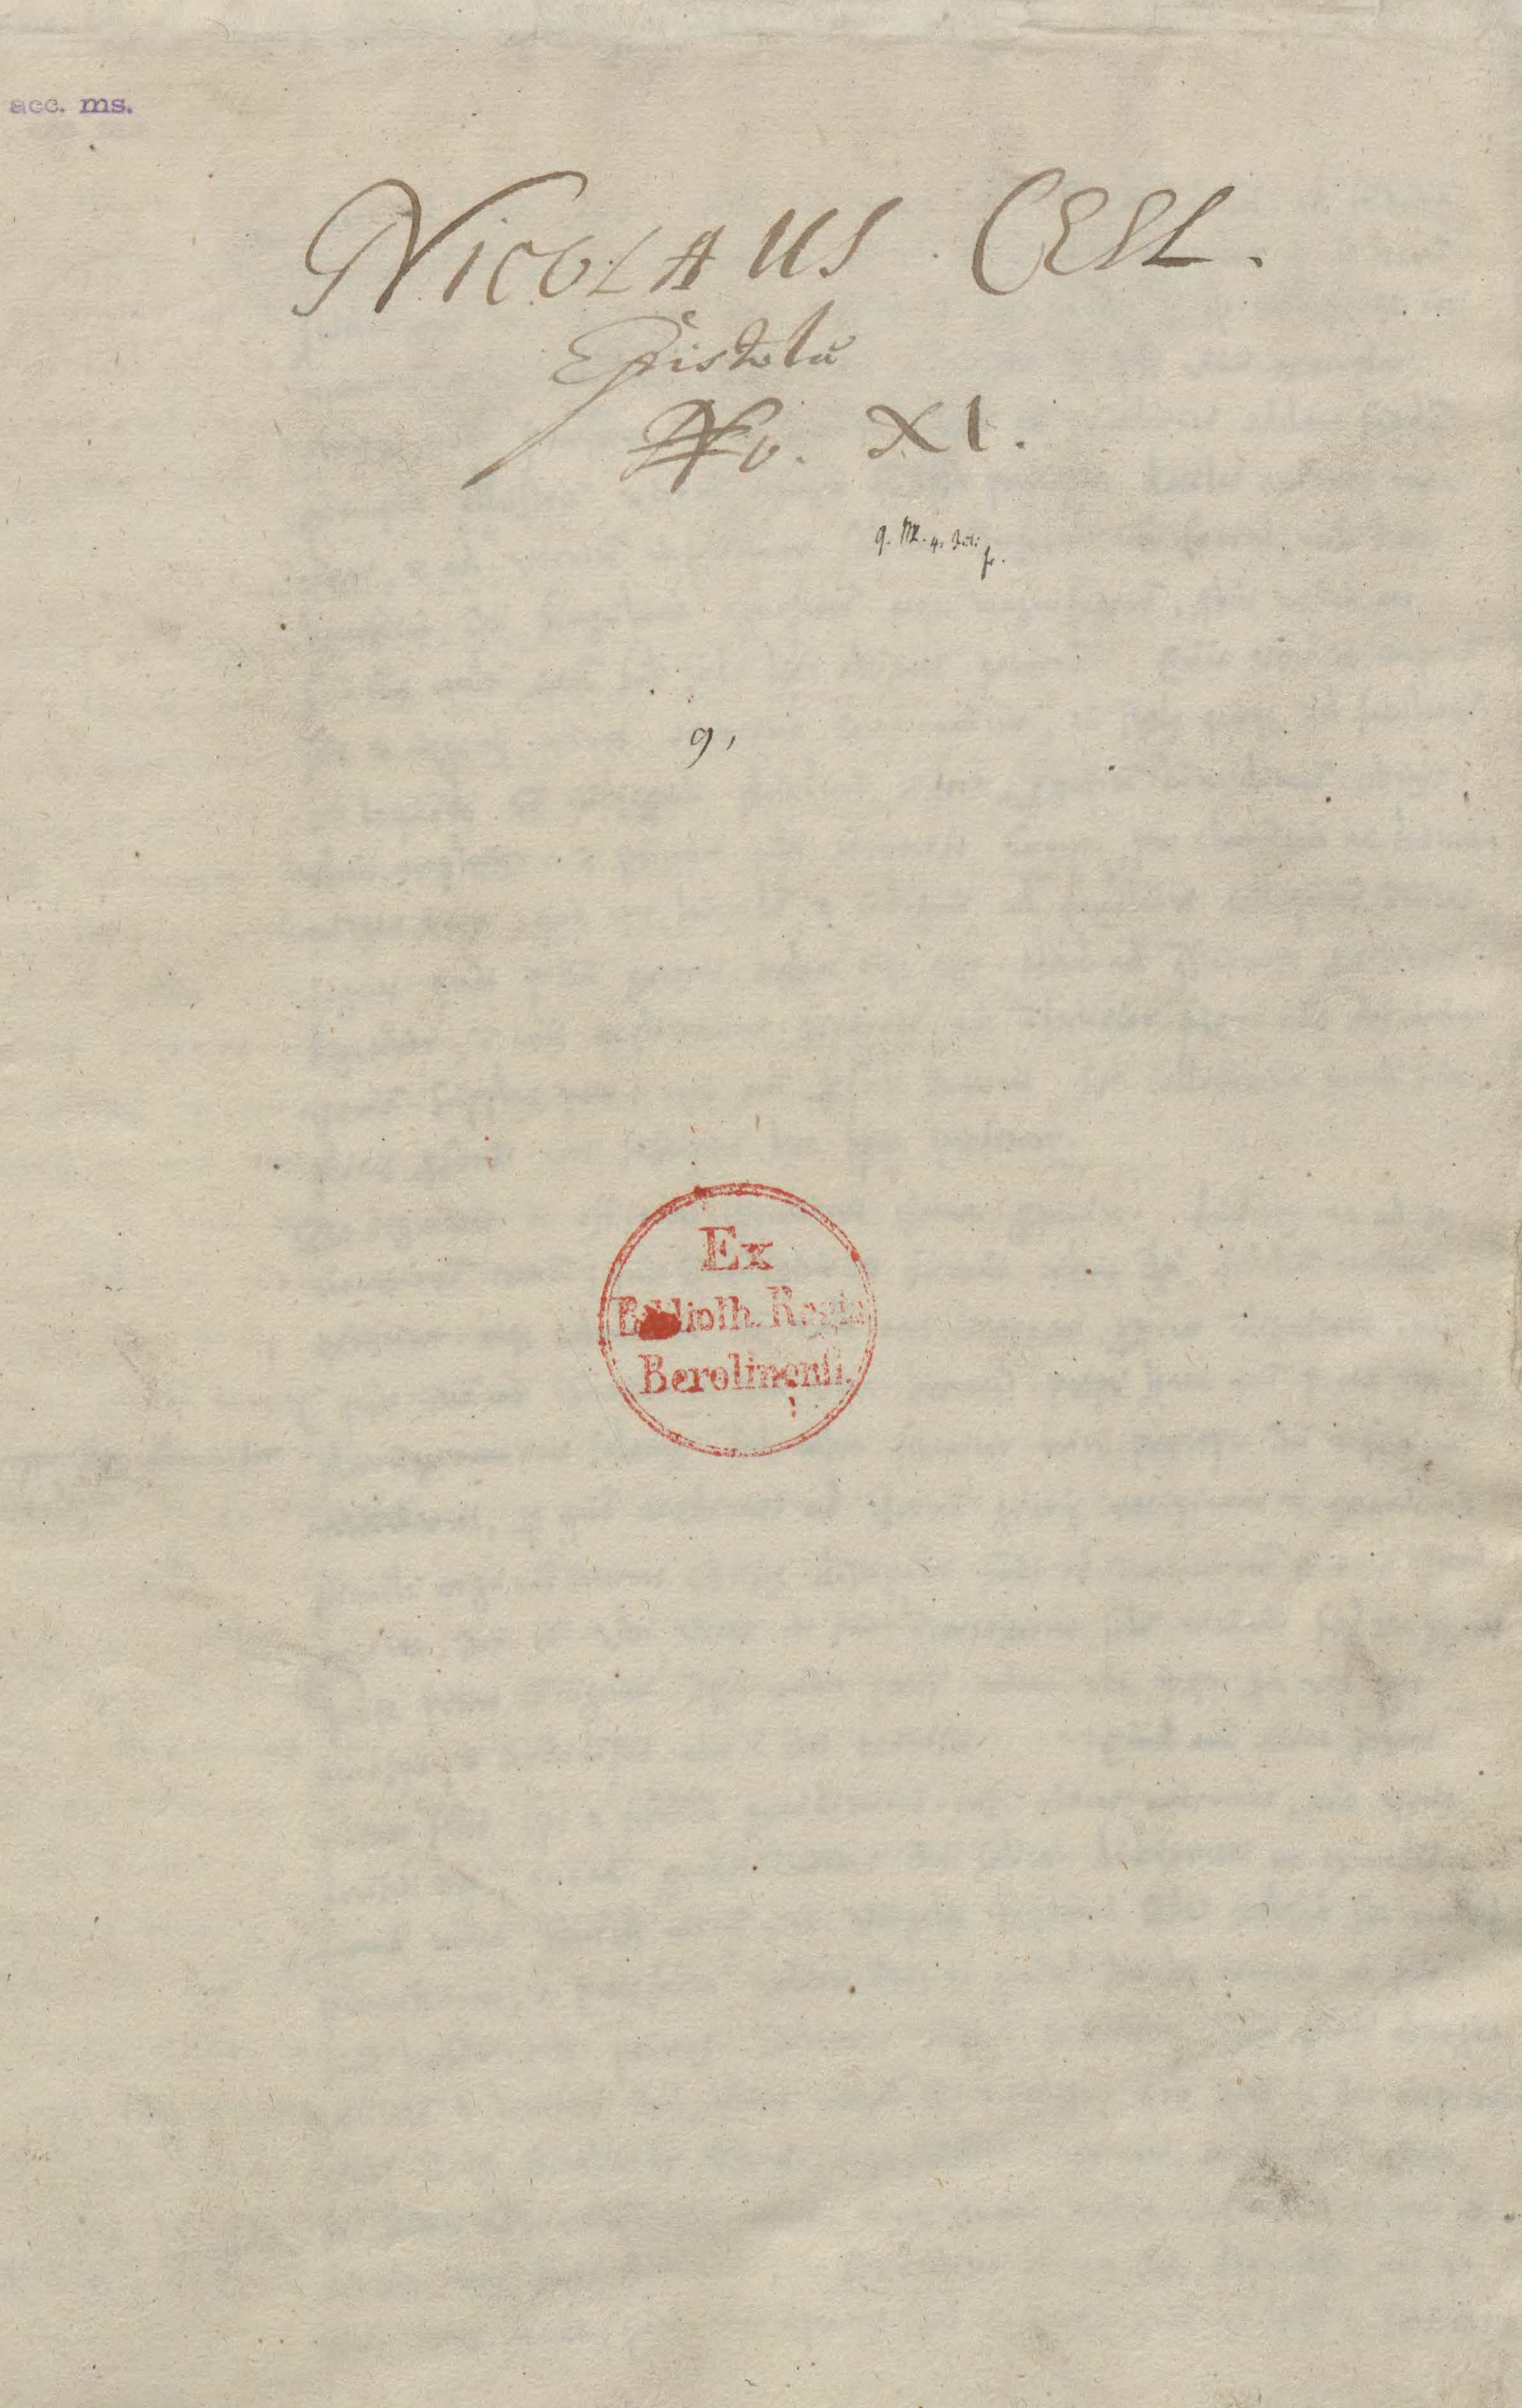 acc. ms.
NICOLAUS CESL.
Epistola
No. XI.
9,
Ex
Biblioth. Regia
Berolinenſi.